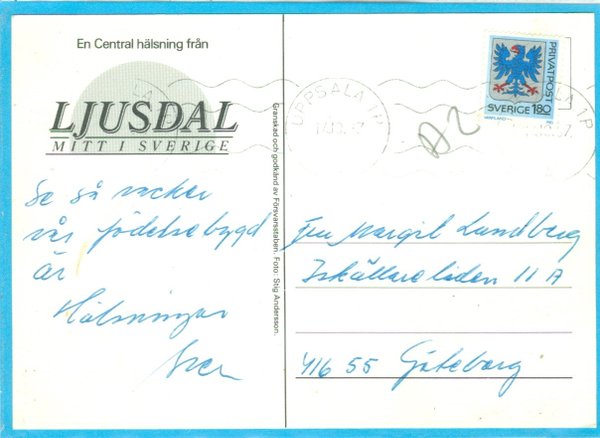 En Central hälsning från
LJUSDAL
MITT I SVERIGE
Se så vacker
vår födelsebygd
är
Hälsningar
Granskad och godkänd av Försvarsstaben. Foto: Stig Andersson.
UPPSALA 1P
A2
PRIVATPOST
SVERIGE 180
Fru Margit Lundberg
Iskällareliden 11 A
416 55 Göteborg